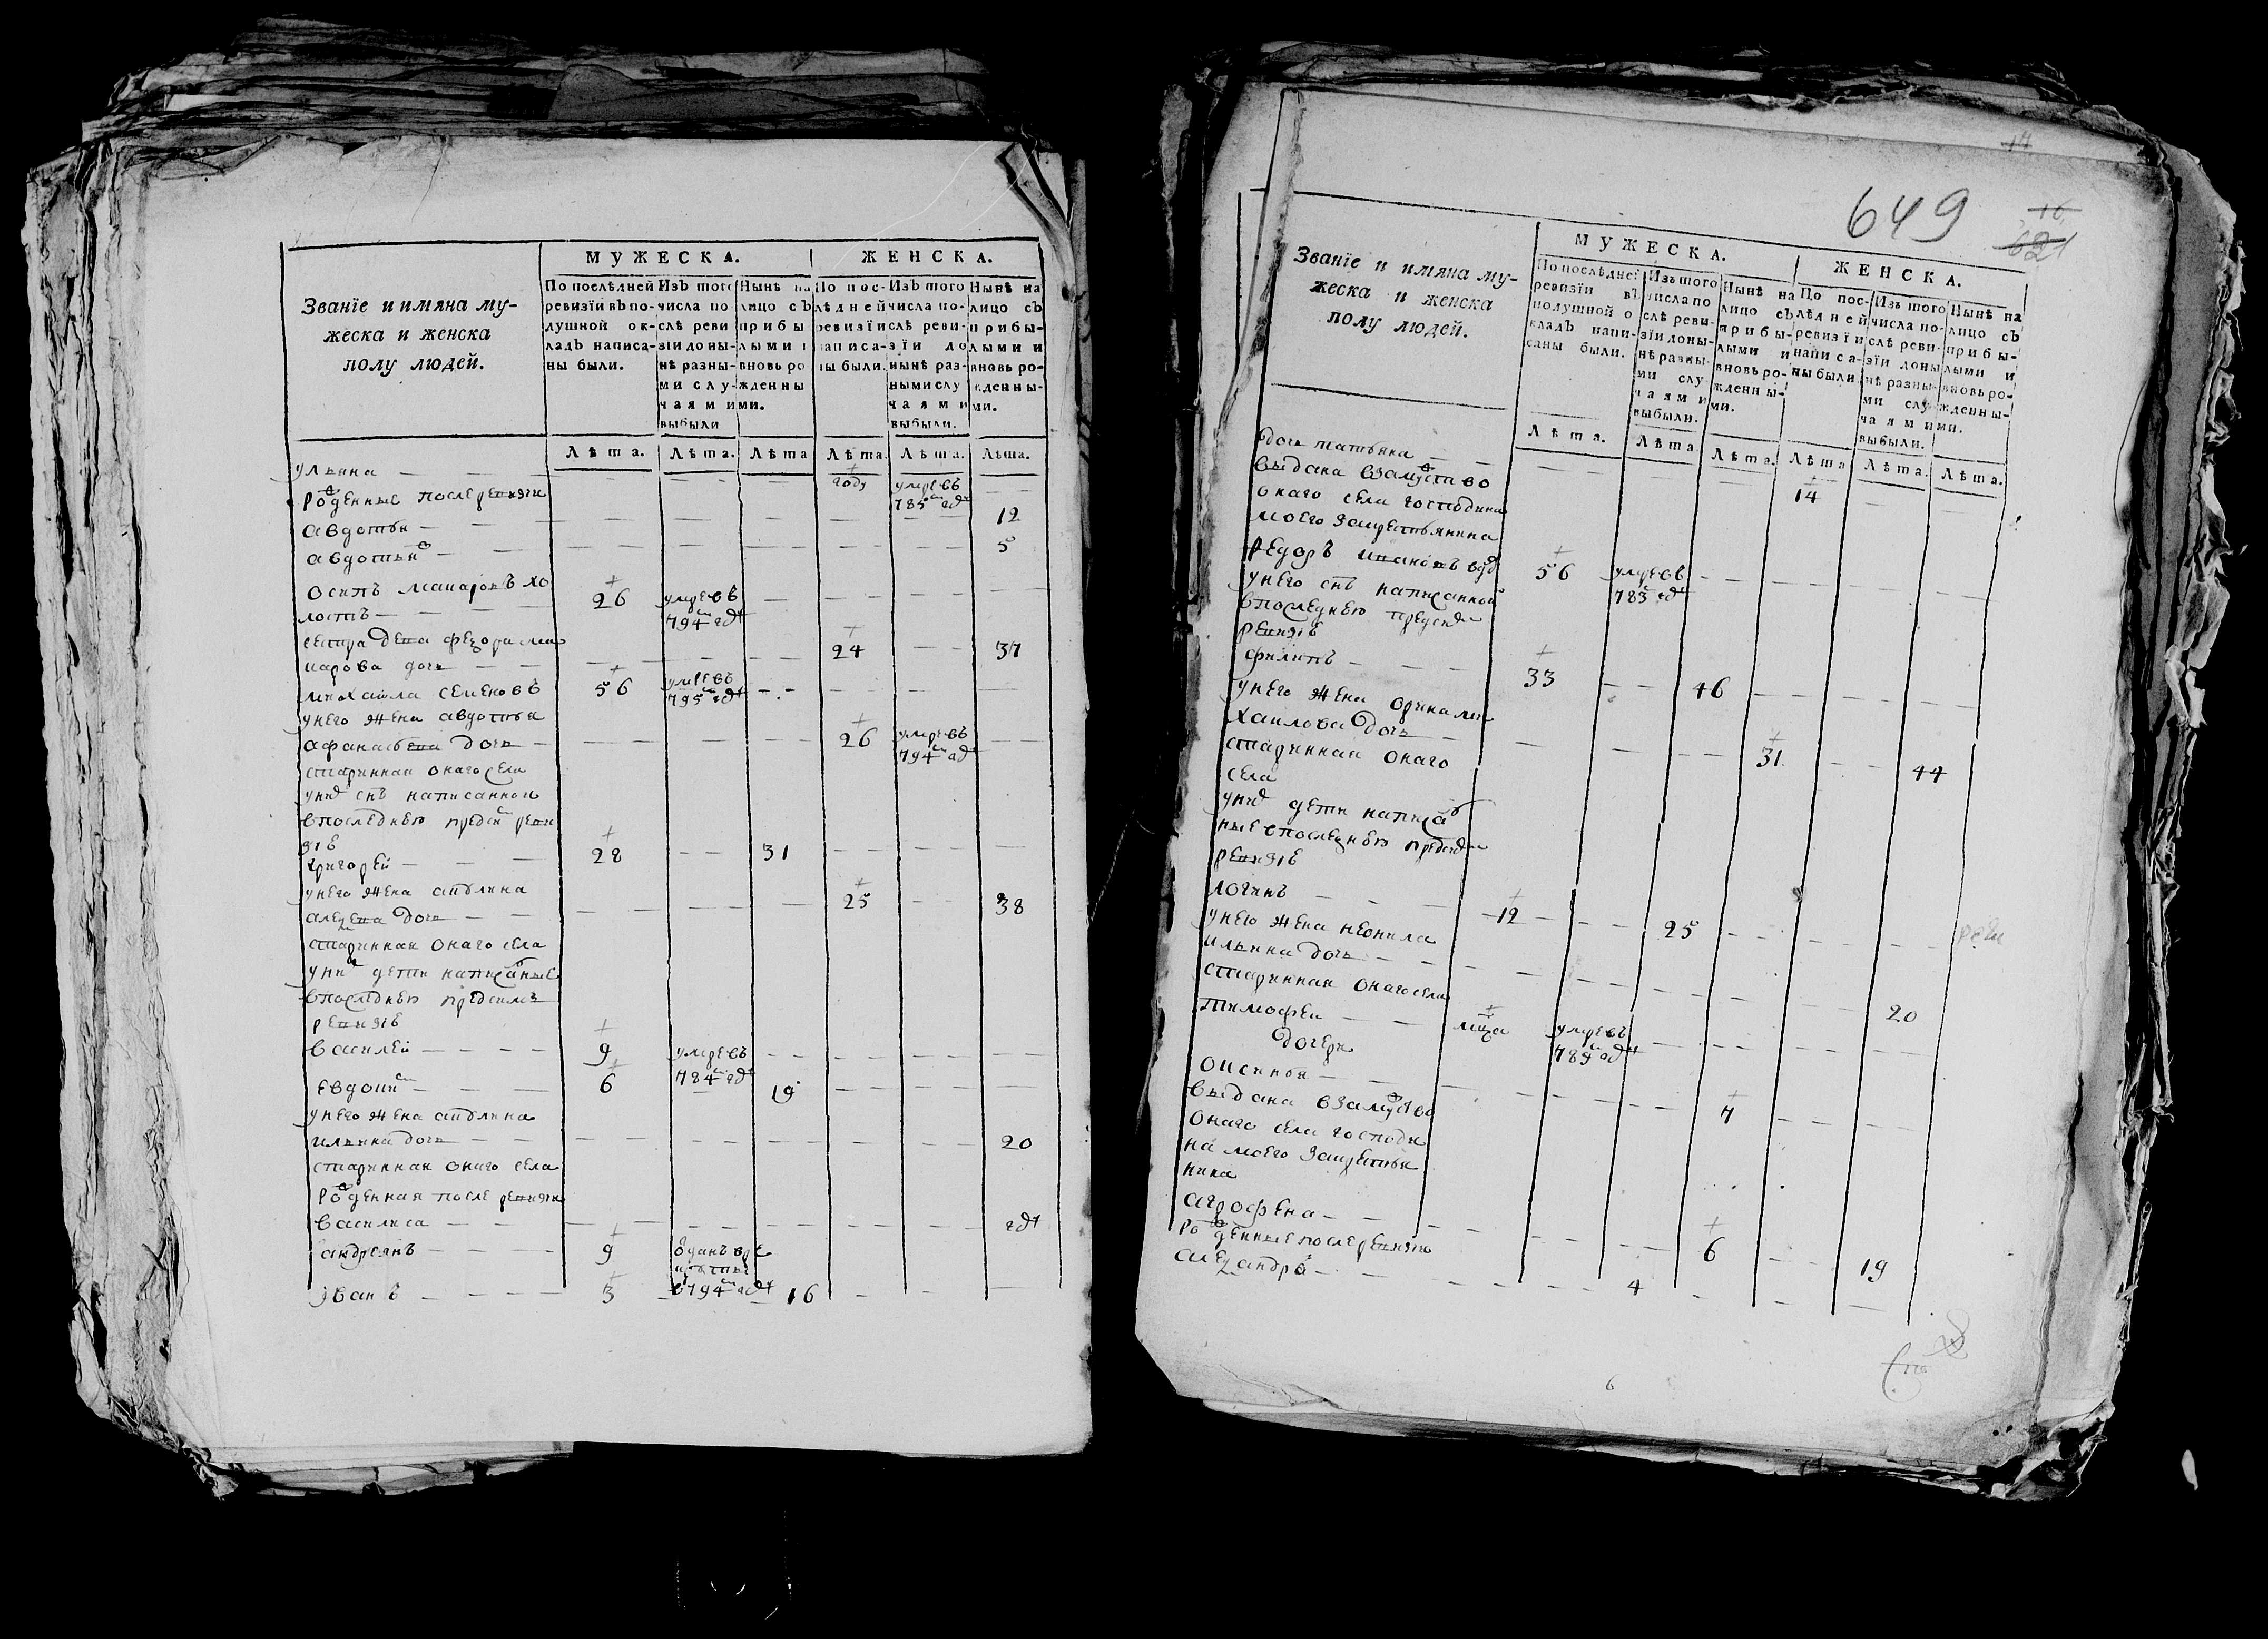 МУЖЕСКА. ЖЕНСКА.
Званїе и имяна му-
жеска и женска
полу людей.
По послѣдней
ревизїи въ по-
душной ок-
ладъ написа-
ны были.
Изъ того
числа по
слѣ реви
зїи доны-
нѣ разны-
ми слу-
чаями
выбыли
Нынѣ на
лицо съ
прибы
лыми и
вновь ро
жденны
ми.
По пос-
лѣдней
ревизїи
написа-
ны были.
Изъ того
числа по-
слѣ реви-
зїи до
нынѣ раз-
ными слу
чаями
выбыли.
Нынѣ на
лицо съ
прибы-
лыми и
вновь ро-
жденны-
ми.
Лѣта. Лѣта. Лѣта Лѣта. Лѣта. Лѣта.
ульяна — году умре въ 785м годѣ
рожденные после ревизiи
авдотья — 12
авдотья — 5
осипъ макаровъ хо
лостъ — 26 умре въ 794м годѣ
сестра
марова дочь — 24 — 37
михаила семеновъ 56 умре въ 795м годѣ
у него жена авдотья
афанасьева дочь — 26 умре въ 794м годѣ
старинная онаго села
у них снъ написанной
впоследнею пред сим реви
зiе
григорей — 28 — 31
у него жена акулина
алеѯева дочь — 25 — 38
старинная онаго села
у них дети написанные
впоследнею пред симъ
ревизiе
василей — 9 умре въ 784м годѣ
евдоким — 6 — 19
у него жена акулина
ильина дочь — 20
старинная онаго села
рожденная после ревизiи
василиса — годѣ
андреянъ — 9 отданъ в ре
круты
в 794м годѣ
иванъ — 3 — 16
17
649
16
621
МУЖЕСКА. ЖЕНСКА.
Званїе и имяна му-
жеска и женска
полу людей.
По послѣдней
ревизїи въ
подушной о
кладъ напи-
саны были.
Изъ того
числа по
слѣ реви-
зїи доны-
нѣ разны-
ми слу
чаями
выбыли.
Нынѣ на
лицо съ
прибы-
лыми и
вновь ро-
жденны-
ми.
По пос-
лѣдней
ревизїи
написа-
ны были.
Изъ того
числа по-
слѣ реви-
зїи доны
нѣ разны-
ми слу
чаями
выбыли.
Нынѣ на
лицо съ
прибы-
лыми и
вновь ро-
жденны-
ми.
Лѣта. Лѣта Лѣта. Лѣта Лѣта. Лѣта.
дочь татьяна — 14
выдана взамужство
онаго села господина
моего за крестьянина
федоръ ивановъ вдов 56 умре въ 783м годѣ
у него снъ написанной
впоследнею пред сим
ревизiе
филипъ — 33 — 46
у него жена орина ми
хаилова дочь — 31 — 44
старинная онаго
села
у них дети написан
ные впоследнею пред сим
ревизiе
логинъ — 12 — 25
у него жена неонила
ильина дочь — 20
старинная онаго села
тимофеи — умре въ 789м годѣ
дочери
оксинья — 7
выдана взамужство
онаго села господи
на моего за крестьян
нина
агрофена — 6 — 19
рожденные после ревизiи
алеѯандра — 4
6